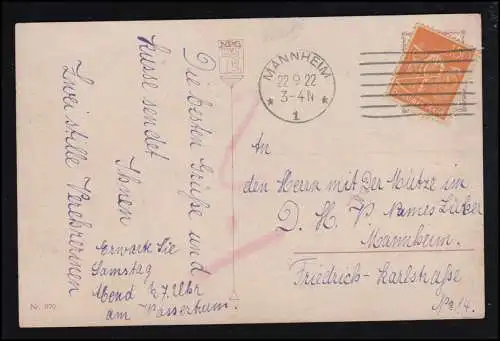 NPG
MANNHEIM
22.9.22
3-4N
* 1 *
Die besten Grüße und
Küsse sendet
Ihnen
Zwei stille Verehrerinnen
Erwarte Sie
Samstag
Abend ½7 Uhr
am Wasserturm.
An
den Herrn mit Der Mütze im
D. H. V Namens
Mannheim.
Friedrich-Karlstraße
No 14.
Nr.